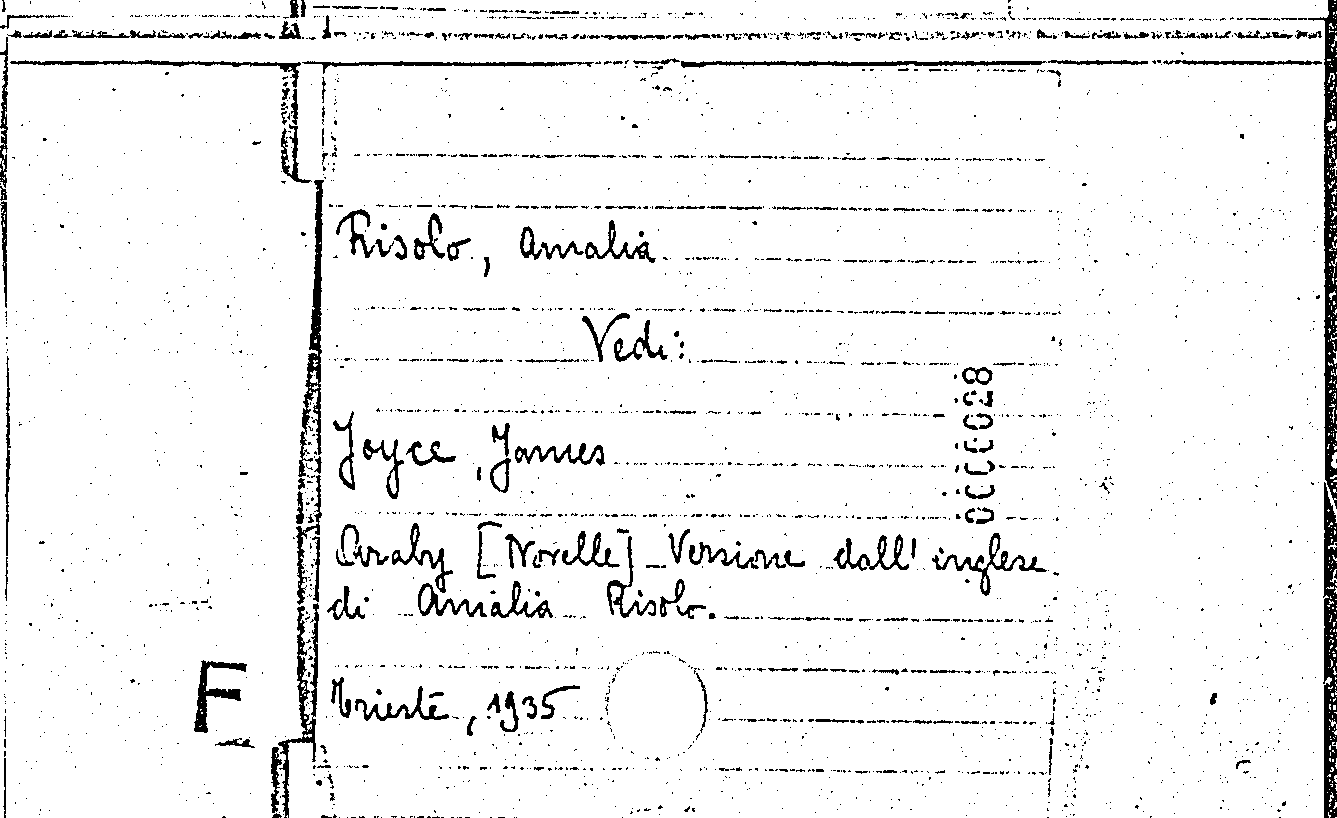 Risolo, Amalia
Vedi:
Joyce, James
Araby [Novelle] Versione dall'inglese
di Amalia Risolo.
Trieste, 1935
F
0000028